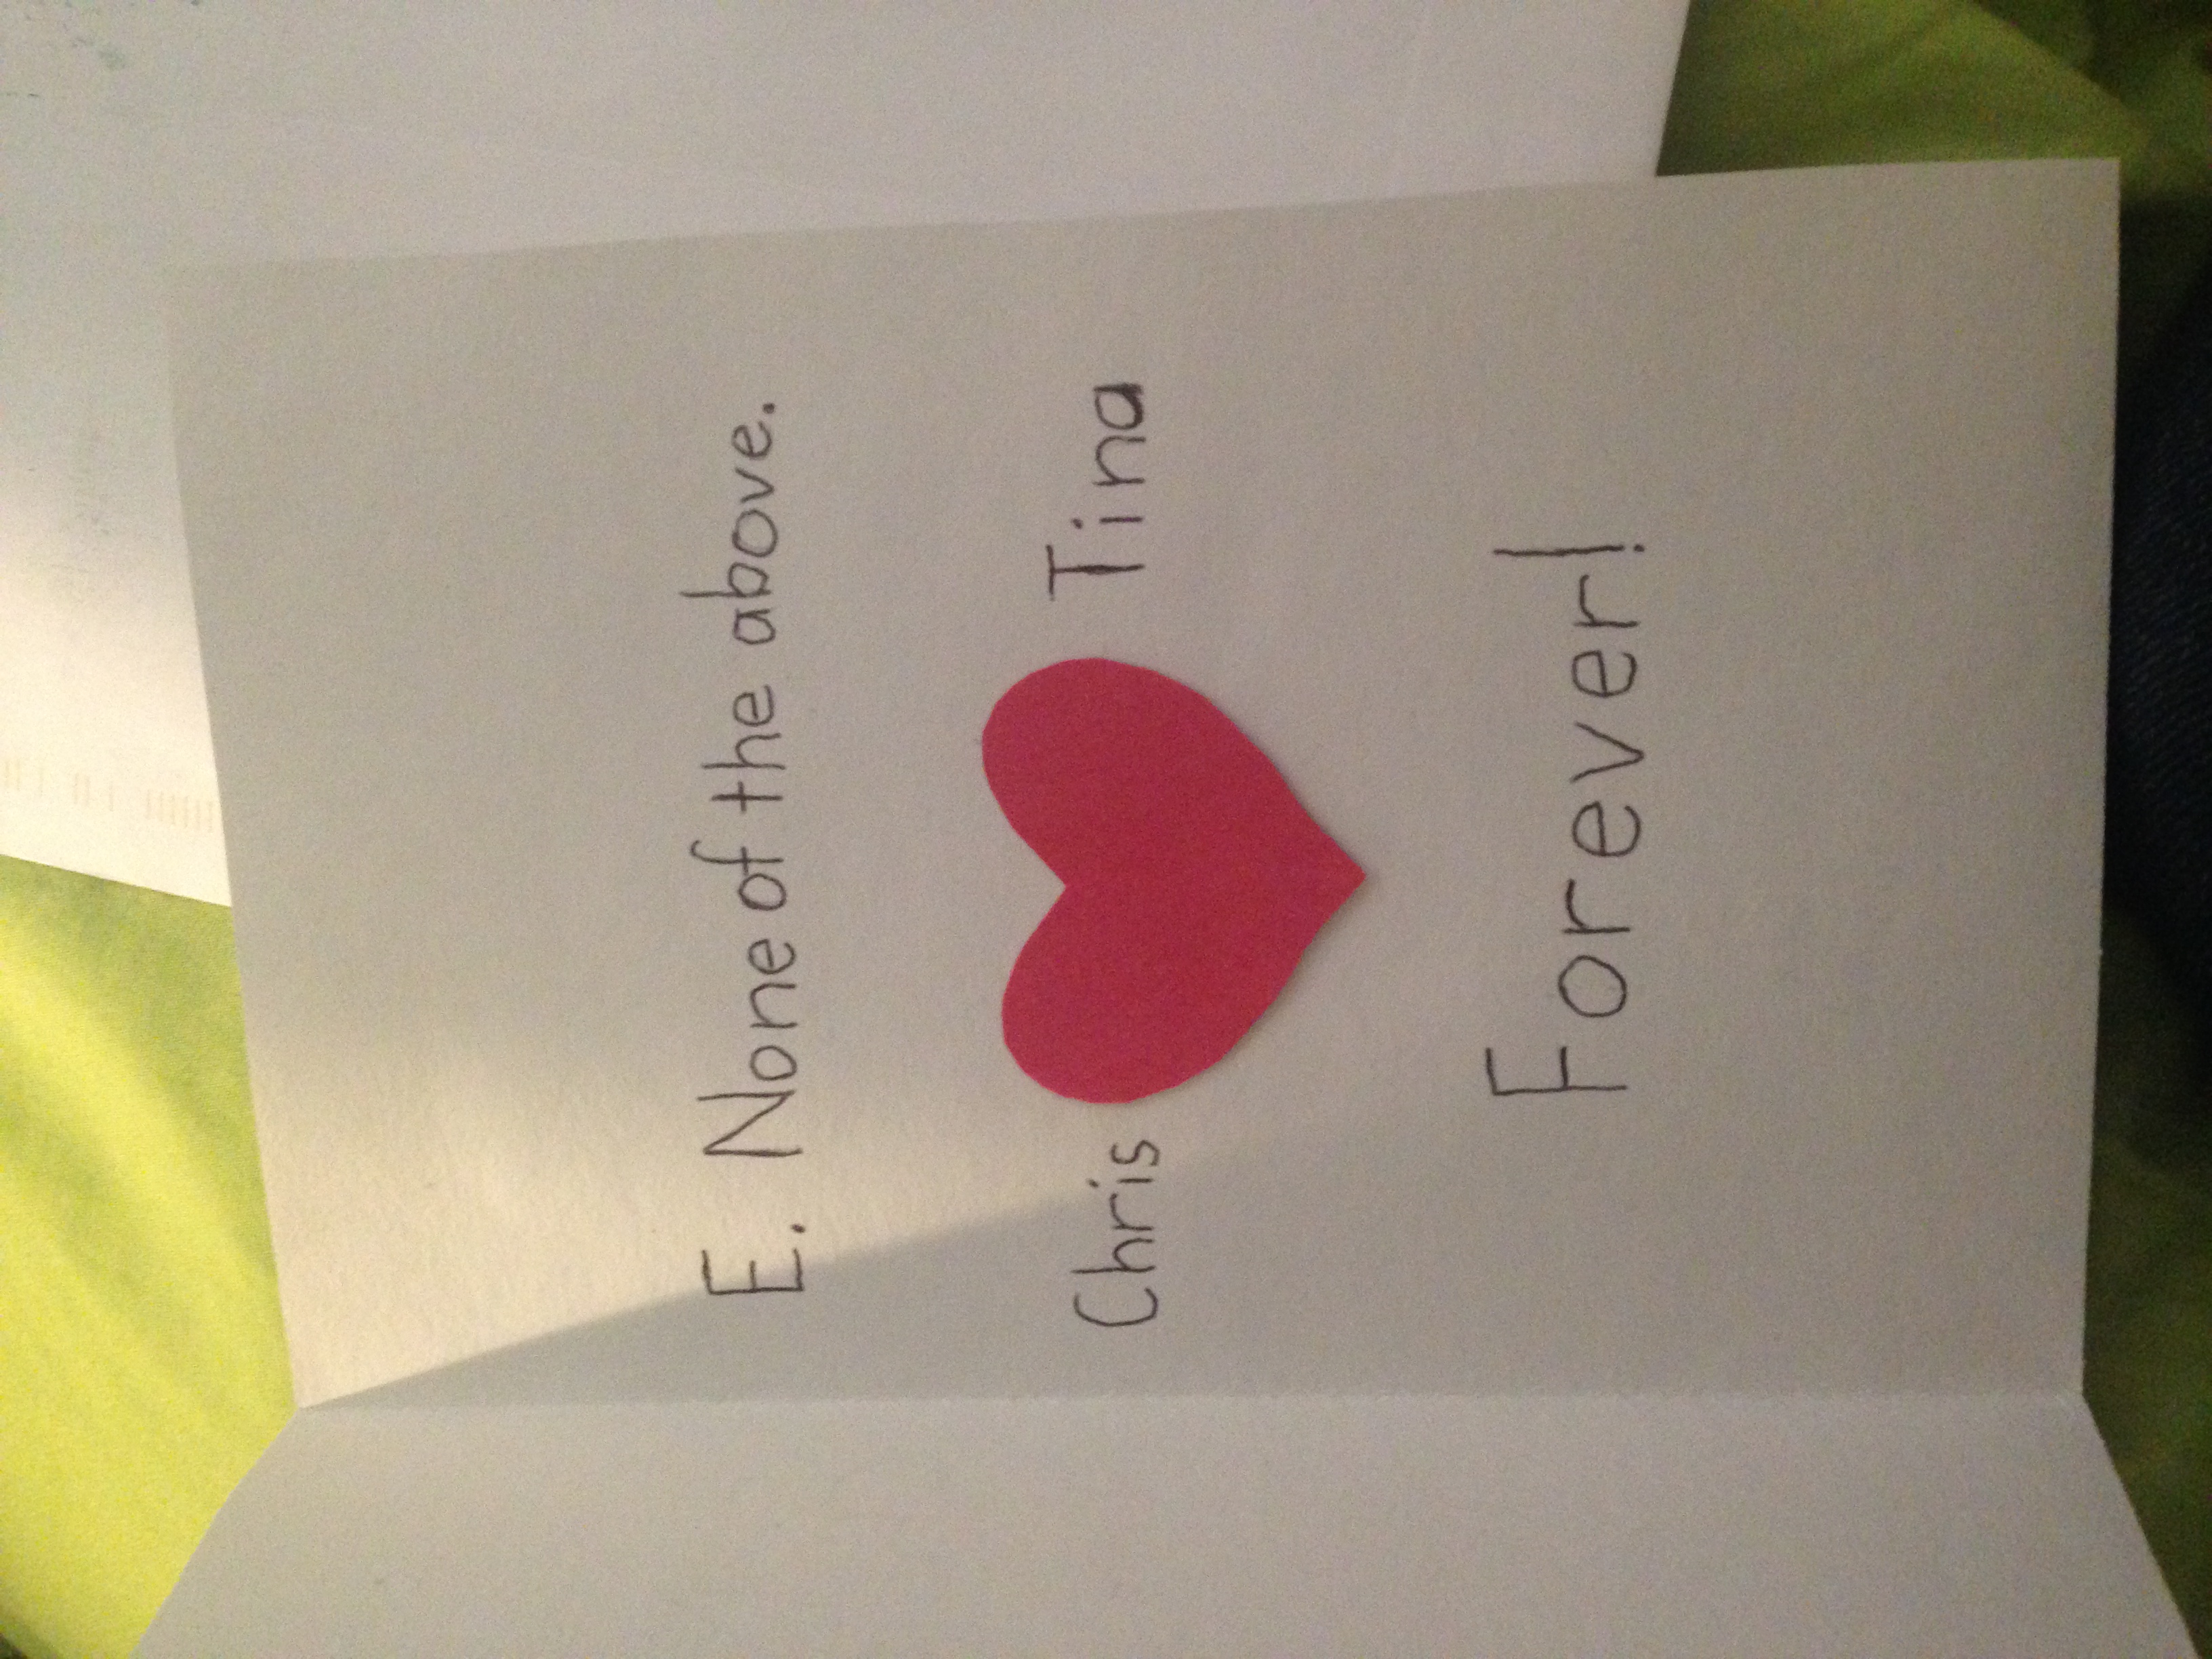 E. None of the above.
Chris Tina
Forever!